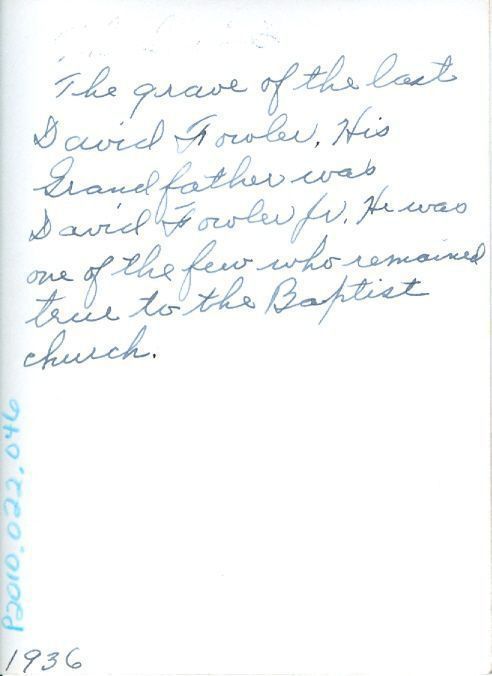 The grave of the last
David Fowler. His
Grandfather was
David Fowler Jr. He was
one of the few who remained
true to the Baptist
church.
P2010.022.046
1936